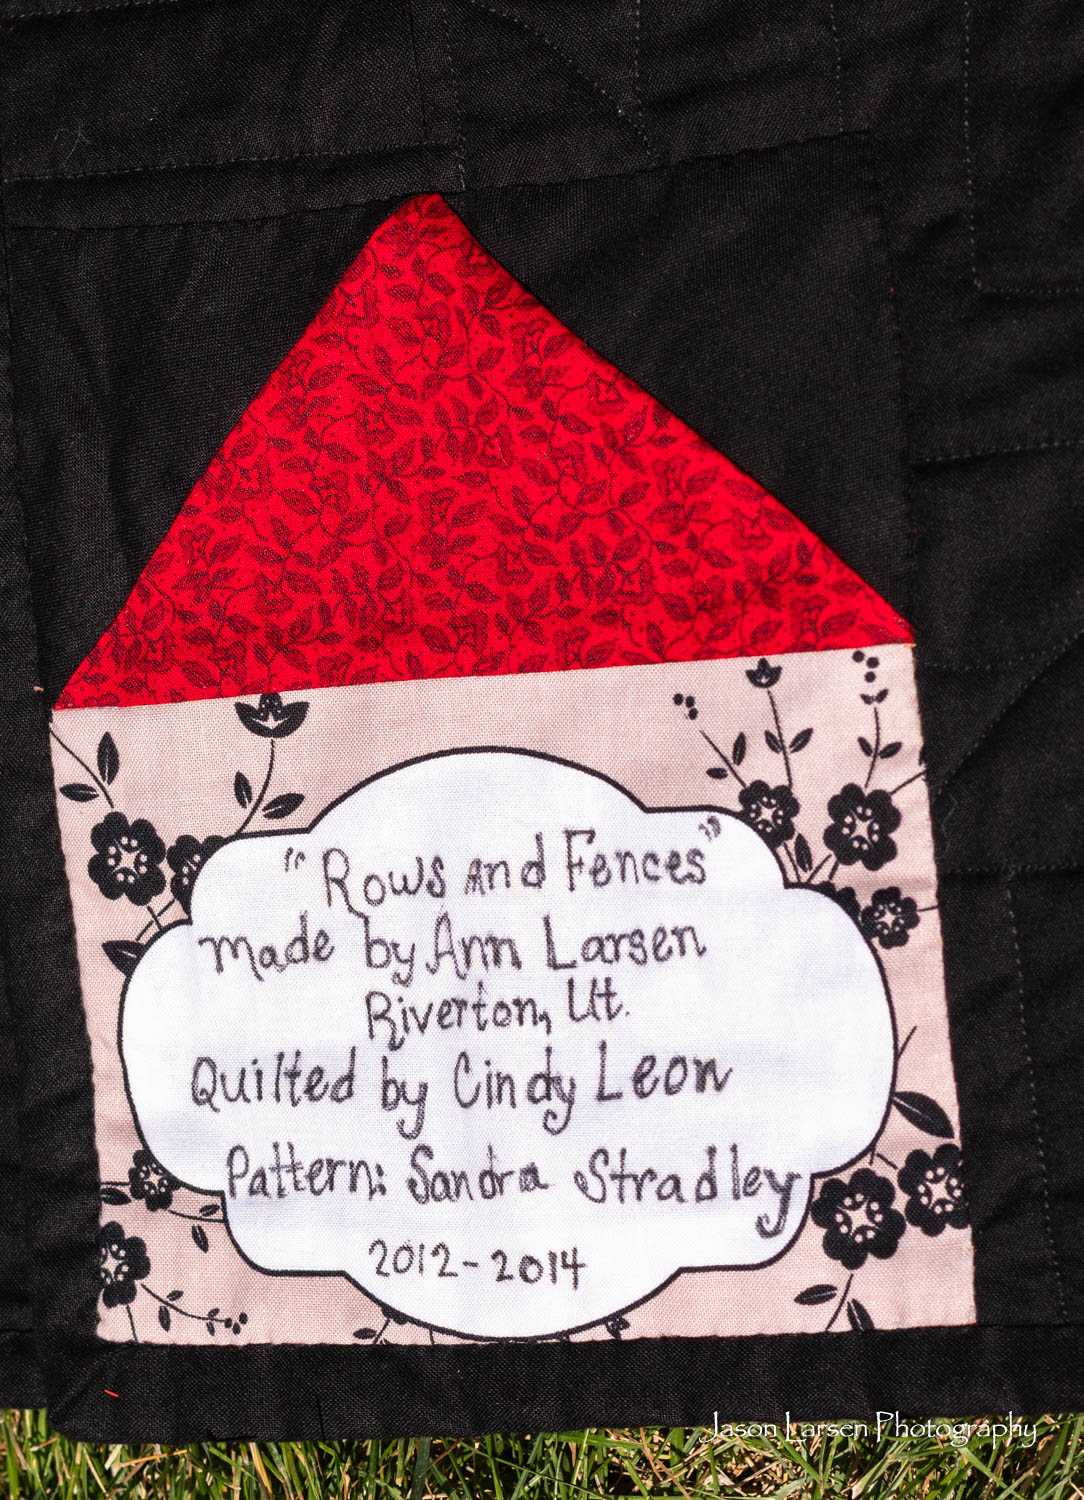 "Rows and Fences"
made by Ann Larsen
Riverton, Ut.
Quilted by Cindy Leon
Pattern: Sandra Stradley
2012-2014
Jason Larsen Photography